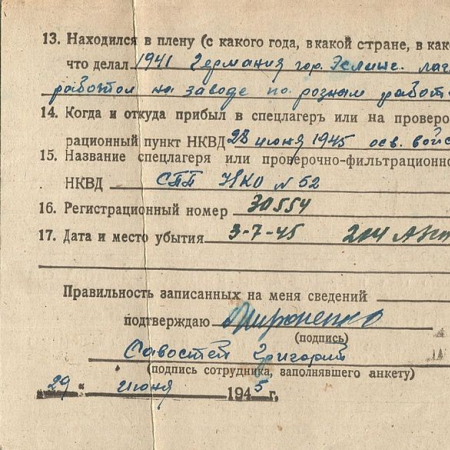 13. Находился в плену (с какого года, в какой стране, в как
что делал 1941 Германия гор. Эслинг. лаг
работал на заводе по разным работ
14. Когда и откуда прибыл в спецлагерь или на проверо
рационный пункт НКВД 28 июня 1945 осв. войс
15. Название спецлагеря или проверочно-фильтрационно
НКВД СПП НКО № 52
16. Регистрационный номер 30554
17. Дата и место убытия 3-7-45 204 АЗСП
Правильность записанных на меня сведений
подтверждаю Мироненко
(подпись)
Григорий
(подпись сотрудника, заполнявшего анкету)
29 " июня 1945 г.